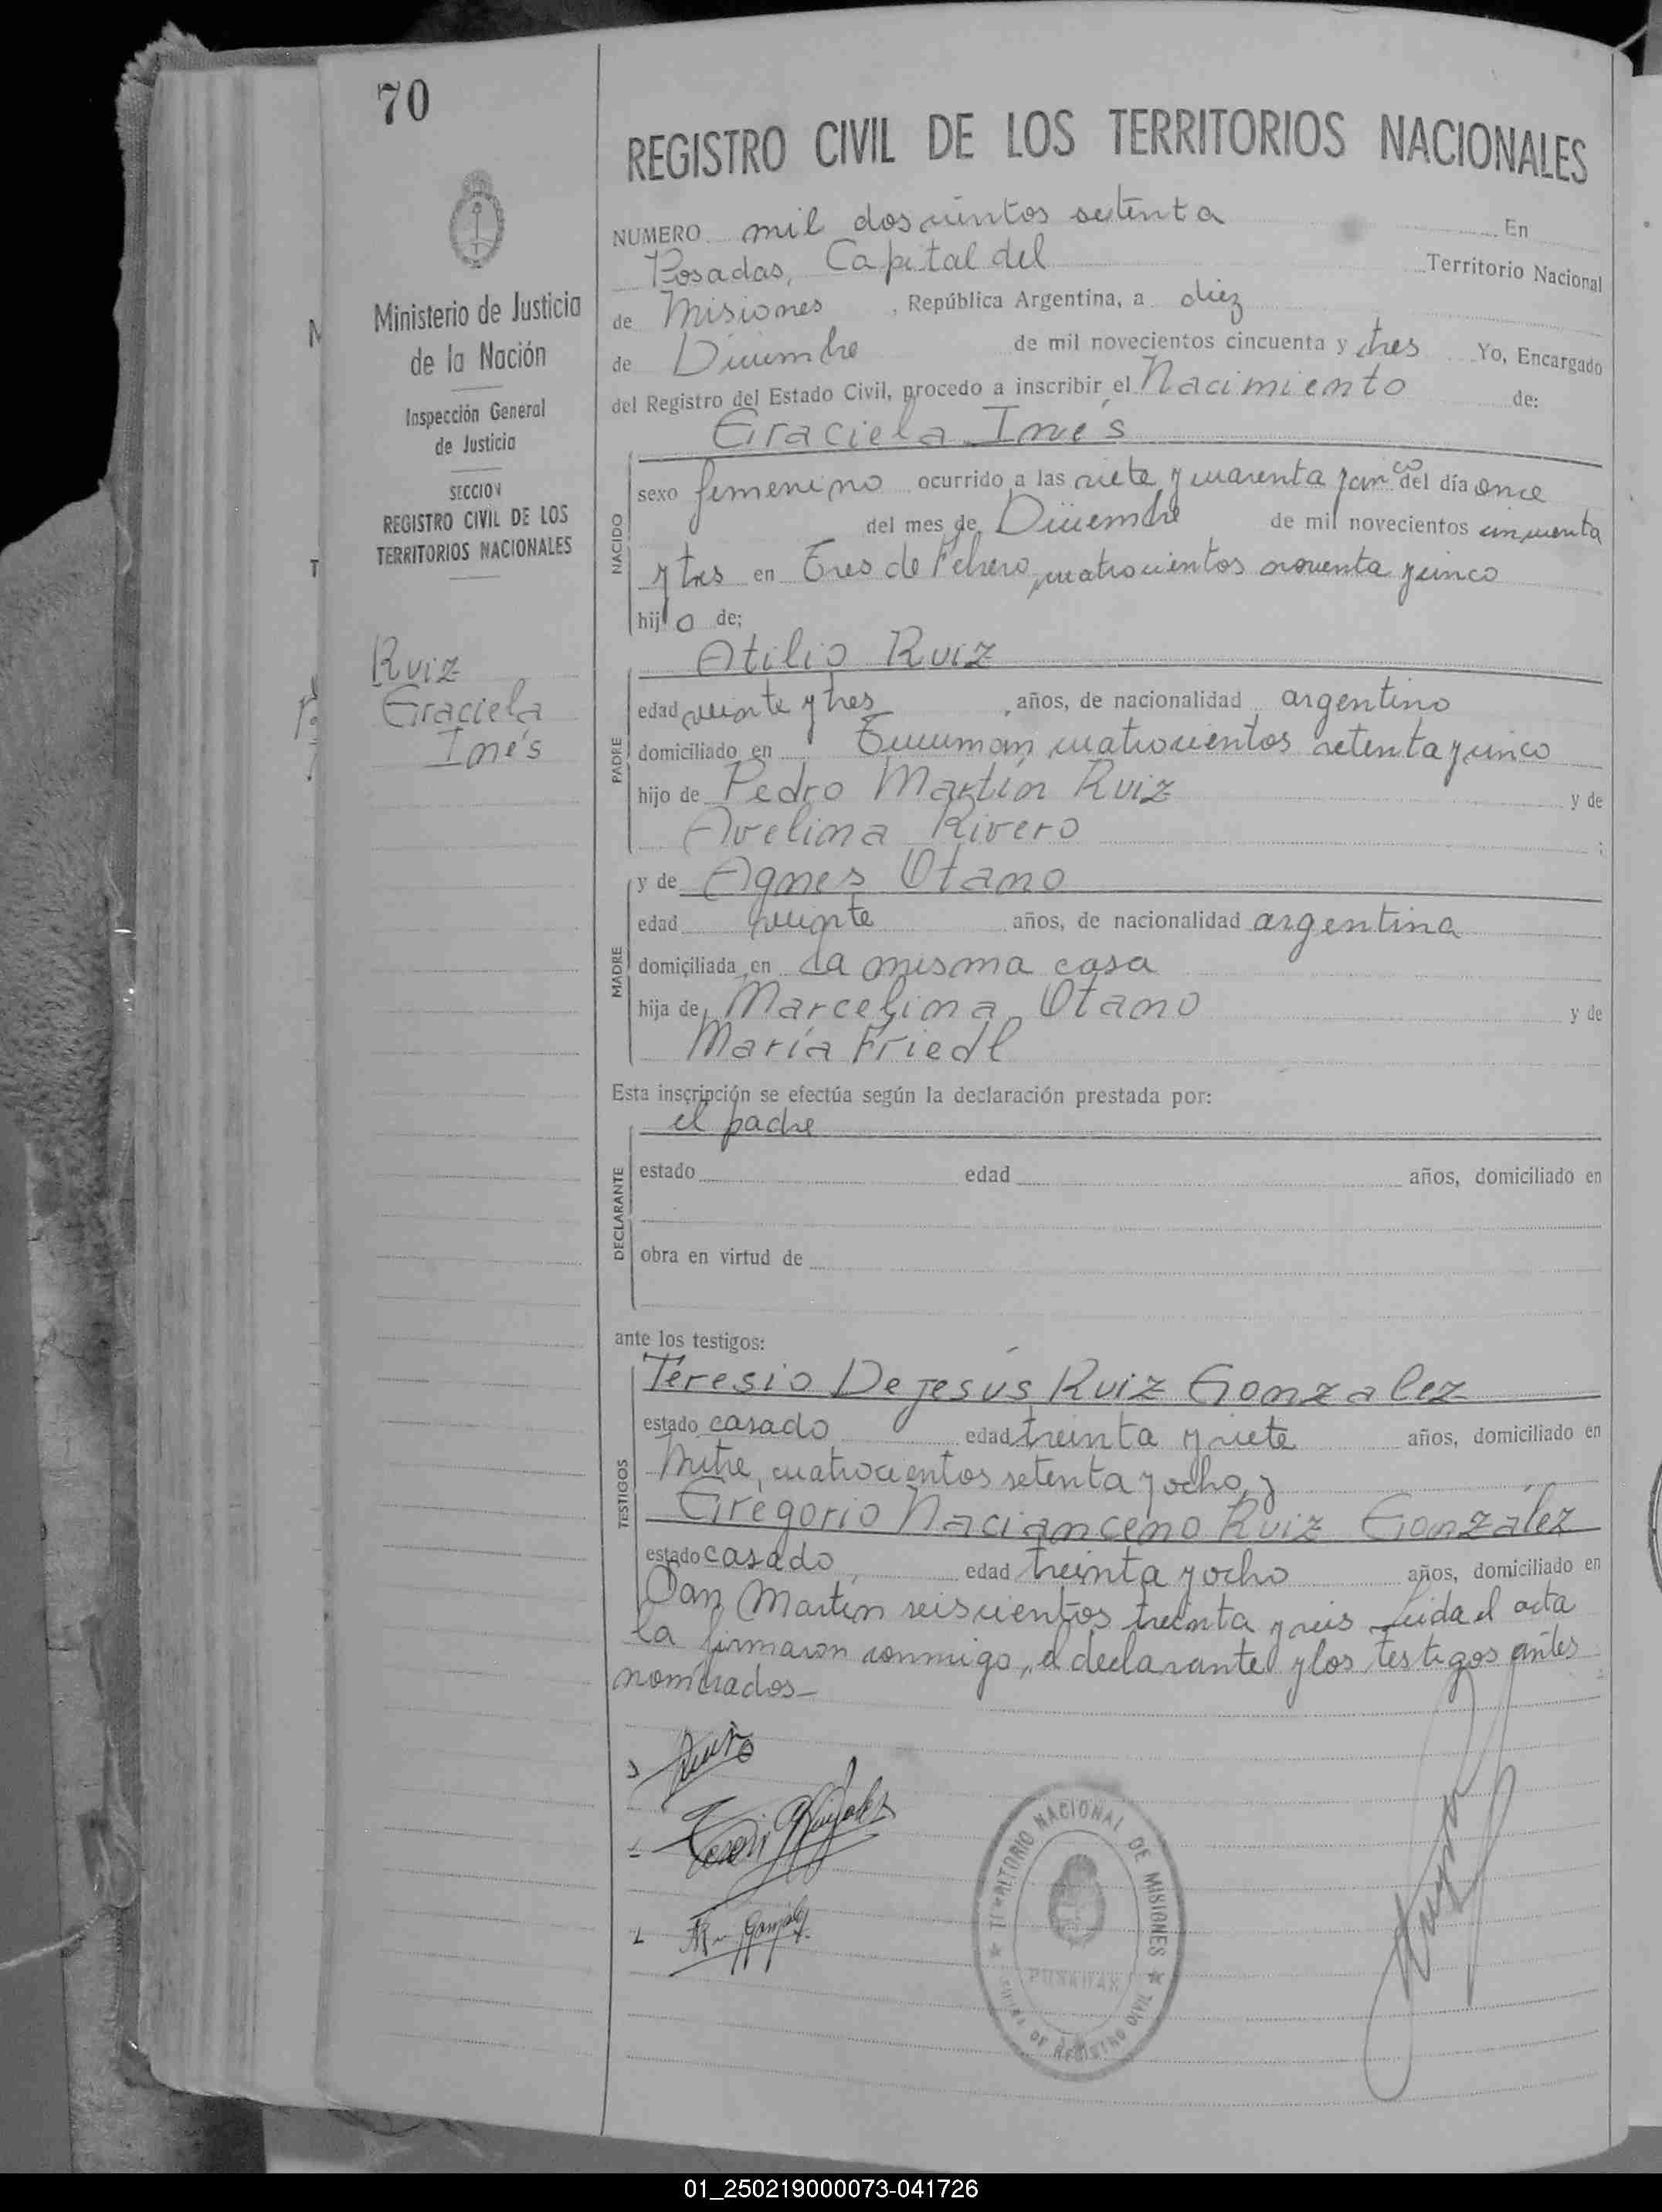 70
REGISTRO CIVIL DE LOS TERRITORIOS NACIONALES
NUMERO mil doscientos setenta En
Posadas, Capital del Territorio Nacional
de Misiones, República Argentina, a diez
de Diciembre de mil novecientos cincuenta y tres Yo, Encargado
del Registro del Estado Civil, procedo a inscribir el Nacimiento de:
Graciela Inés
Ministerio de Justicia
de la Nación
Inspección General
de Justicia
SECCION
REGISTRO CIVIL DE LOS
TERRITORIOS NACIONALES
Ruiz
Graciela
Inés
NACIDO
sexo femenino ocurrido a las siete y cuarenta y cinco del día once
del mes de Diciembre de mil novecientos cincuenta
y tres en Tres de Febrero, cuatrocientos noventa y cinco
hijo de:
Atilio Ruiz
PADRE
edad veinte y tres años, de nacionalidad argentino
domiciliado en Tucumán cuatrocientos setenta y cinco
hijo de Pedro Martín Ruiz y de
Avelina Rivero ;
MADRE
y de Agnes Otano
edad veinte años, de nacionalidad argentina
domiciliada en la misma casa
hija de Marcelina Otano y de
María Friedl
Esta inscripción se efectúa según la declaración prestada por:
el padre
DECLARANTE
estado edad años, domiciliado en
obra en virtud de
ante los testigos:
TESTIGOS
Teresio De Jesús Ruiz Gonzalez
estado casado edad treinta y siete años, domiciliado en
Mitre, cuatrocientos setenta y ocho, y
Gregorio Nacianceno Ruiz González
estado casado, edad treinta y ocho años, domiciliado en
San Martín seiscientos treinta y seis Leida el acta
la firmaron conmigo, el declarante y los testigos antes
nombrados-
TERRITORIO NACIONAL DE MISIONES
POSADAS
DE REGISTRO CIVIL
01_250219000073-041726